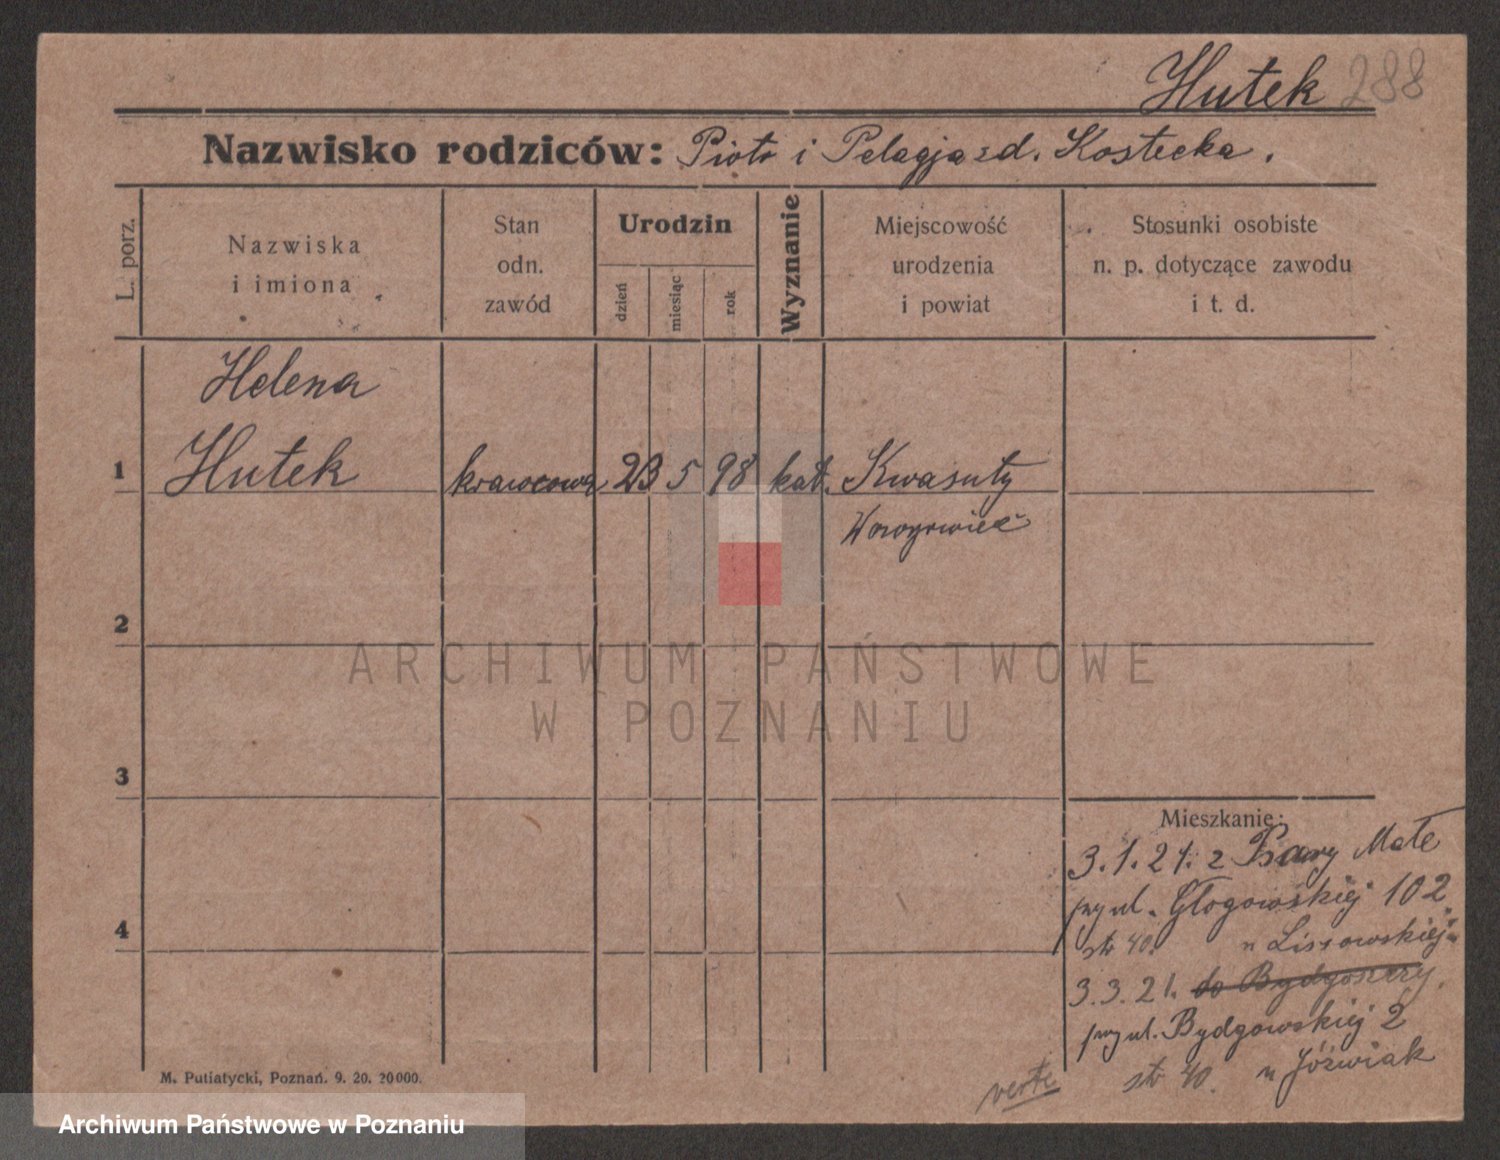 Hutek 288
Nazwisko rodziców: Piotr i Pelagja zd. Kostecka.
L. porz.
Nazwiska
i imiona
Stan
odn.
zawód
Urodzin
dzień
miesiąc
rok
Wyznanie
Miejscowość
urodzenia
i powiat
Stosunki osobiste
n. p. dotyczące zawodu
i t. d.
Helena
1 Hutek krawcowa 23 5 98 kat. Kwasuty
2
3
4
ARCHIWUM PAŃSTWOWE
W POZNANIU
Mieszkanie:
3.1.21. z Małe
przy ul. Głogowskiej 102
str 40. u Lissowskiej
3.3.21. do Bydgoszczy.
przy ul. Bydgowskiej 2
str 40. u Jóźwiak
verte
M. Putiatycki, Poznań. 9. 20. 20000.
Archiwum Państwowe w Poznaniu